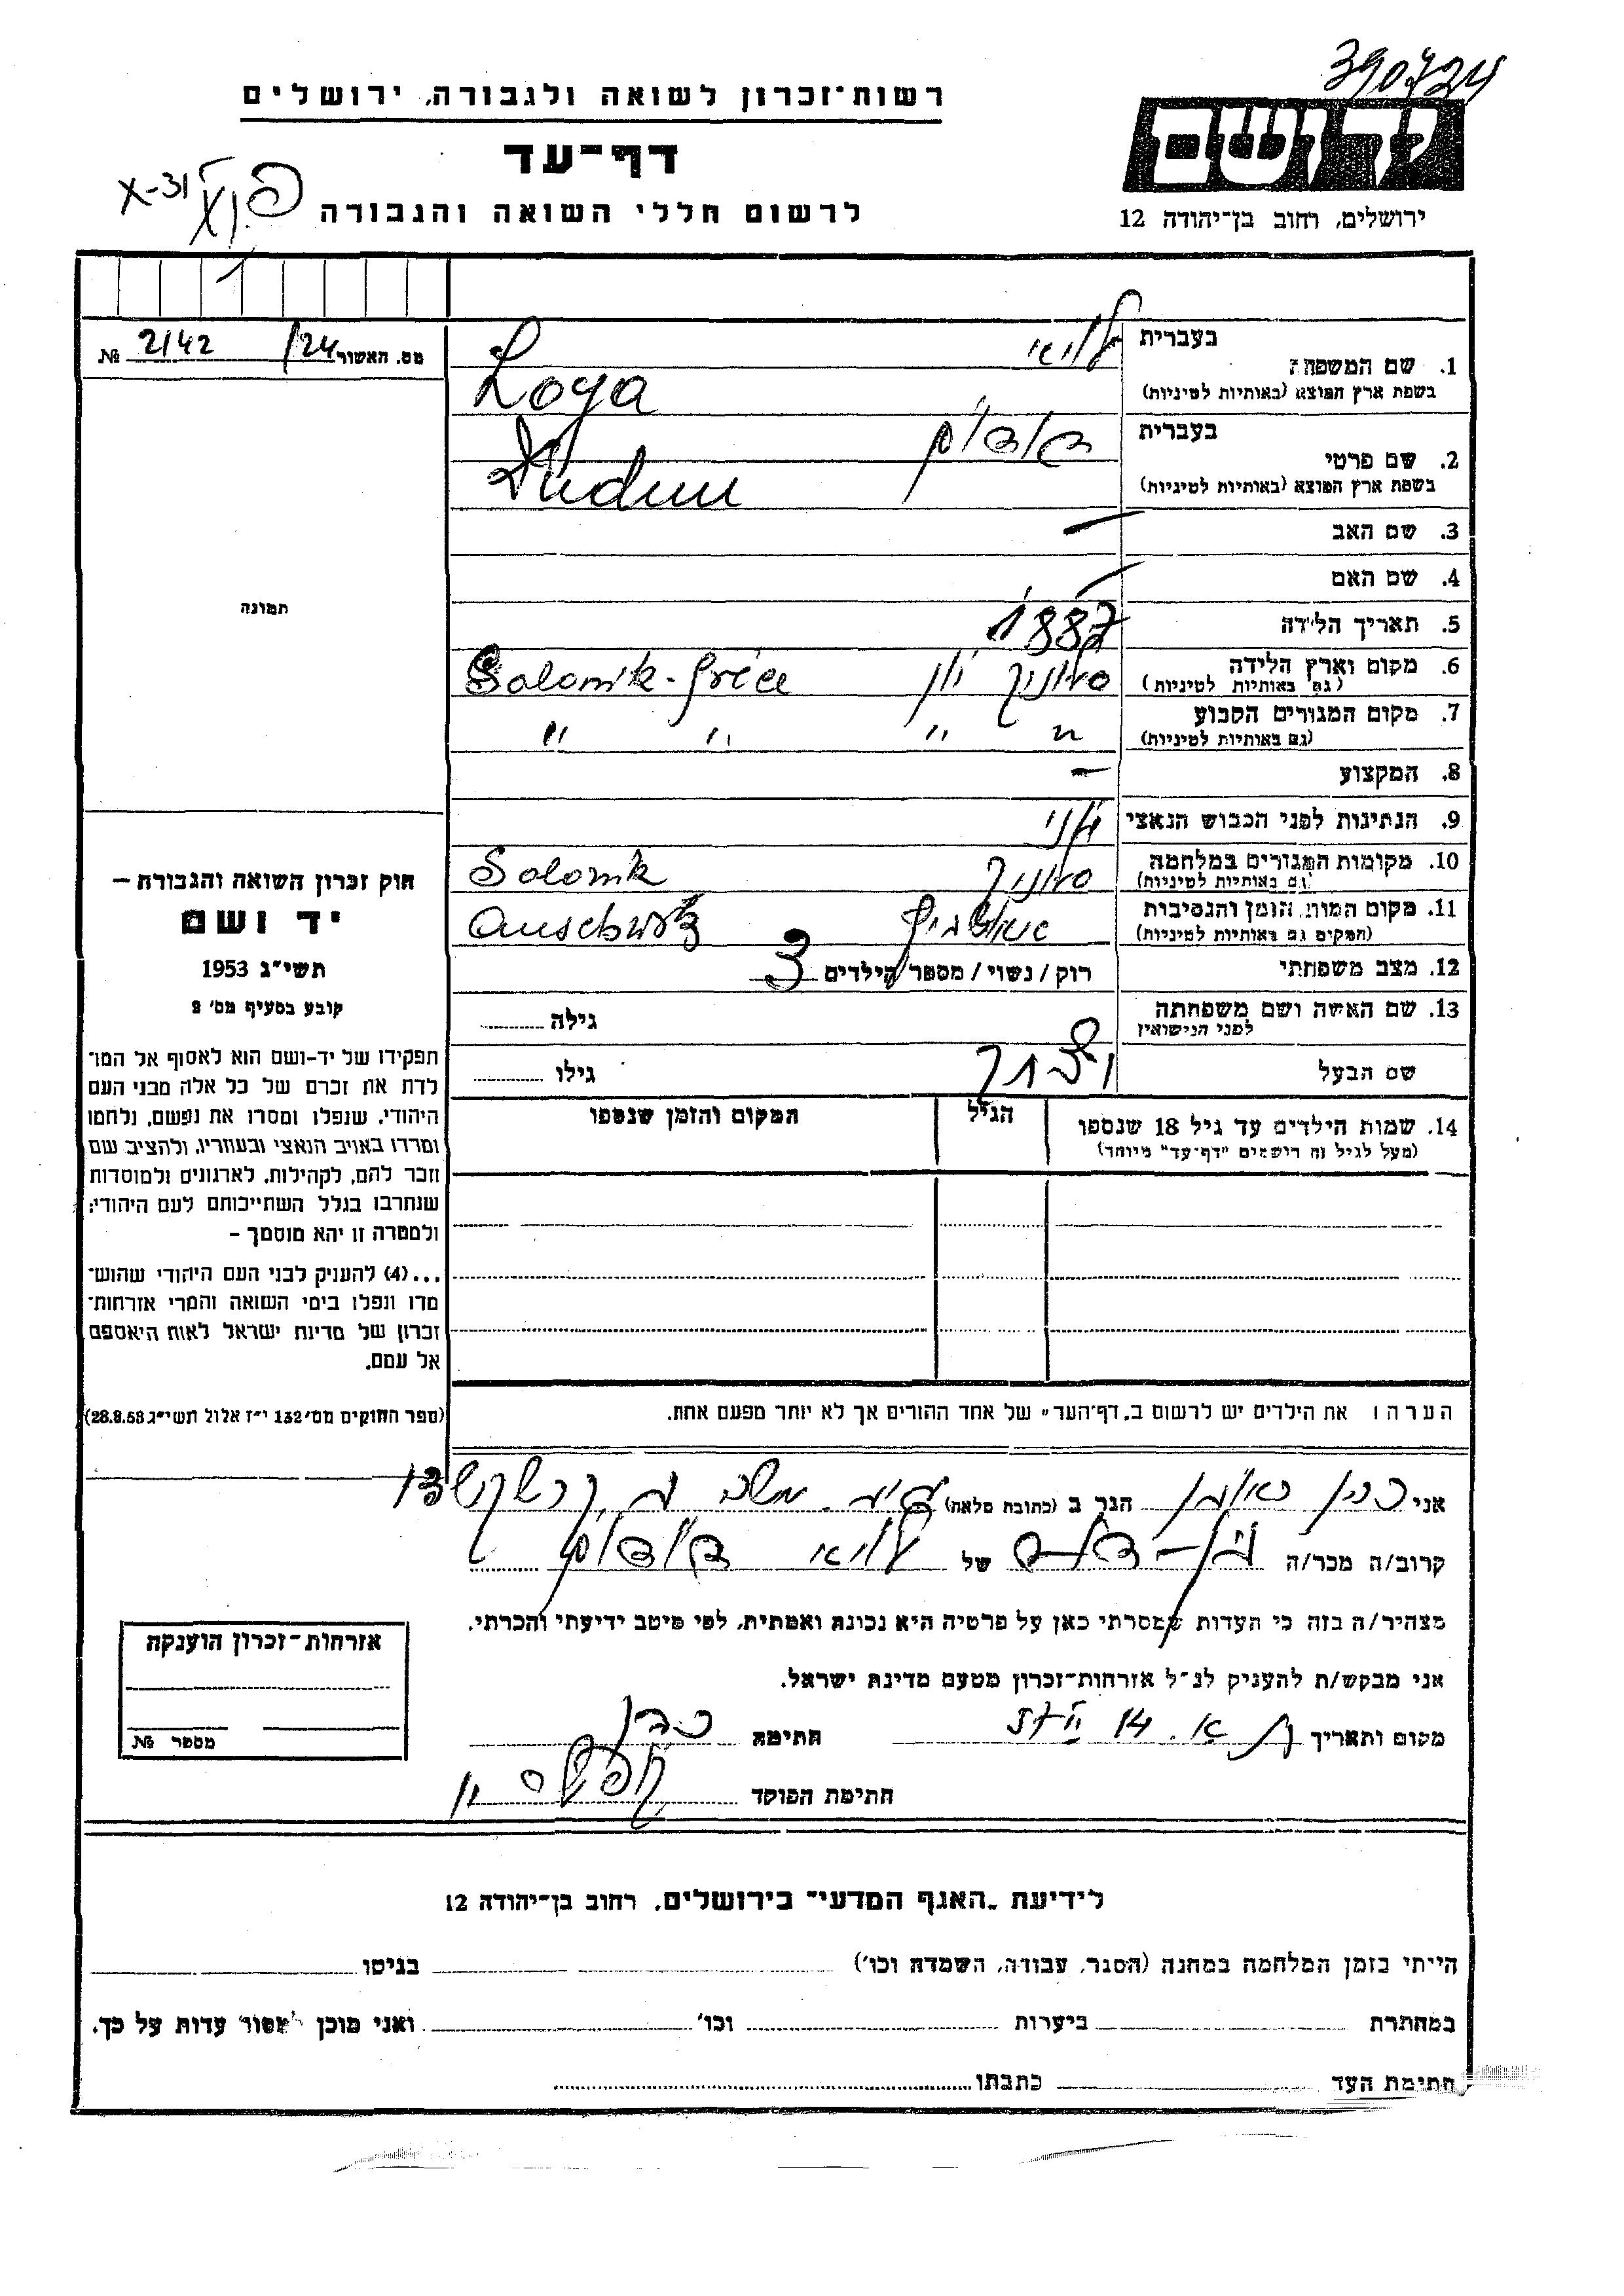 390724
רשות־זכרון לשואה ולגבורה, ירושלים
דף־עד
לרשום חללי השואה והגבורה
X-31
ידושם
ירושלים, רחוב בן־יהודה 12
מס. האשור 24/ 2142 №
תמונה
חוק זכרון השואה והגבורה –
יד ושם
תשי״ג 1953
קובע בסעיף מס׳ 2
תפקידו של יד-ושם הוא לאסוף אל המו־
לדת את זכרם של כל אלה מבני העם
היהודי, שנפלו ומסרו את נפשם, נלחמו
ומרדו באויב הנאצי ובעוזריו, ולהציב שם
וזכר להם, לקהילות, לארגונים ולמוסדות
שנחרבו בגלל השתייכותם לעם היהודי;
ולמטרה זו יהא מוסמך –
...(4) להעניק לבני העם היהודי שהוש־
מדו ונפלו בימי השואה והמרי אזרחות־
זכרון של מדינת ישראל לאות היאספם
אל עמם.
(ספר החוקים מס׳ 132 י״ז אלול תשי״ג 28.8.53)
1. שם המשפחה בעברית
בשפת ארץ המוצא (באותיות לטיניות)
Loya
2. שם פרטי בעברית
בשפת ארץ המוצא (באותיות לטיניות)
3. שם האב –
4. שם האם –
5. תאריך הלידה 1887
6. מקום וארץ הלידה סלוניק יון Salonik - Gréce
(גם באותיות לטיניות)
7. מקום המגורים הקבוע " " " "
(גם באותיות לטיניות)
8. המקצוע –
9. הנתינות לפני הכבוש הנאצי יוני
10. מקומות המגורים במלחמה סלוניק Salonik
(גם באותיות לטיניות)
11. מקום המות, הזמן והנסיבות אושויץ Auschwitz
(המקום גם באותיות לטיניות)
12. מצב משפחתי רוק / נשוי / מספר הילדים 3
13. שם האשה ושם משפחתה גילה
לפני הנישואין
שם הבעל גילו
14. שמות הילדים עד גיל 18 שנספו הגיל המקום והזמן שנספו
(מעל לגיל זה רושמים "דף־עד" מיוחד)
הערה: את הילדים יש לרשום ב„דף־העד" של אחד ההורים אך לא יותר מפעם אחת.
אני כהן הגר ב (כתובת מלאה)
קרוב/ה מכר/ה של
מצהיר/ה בזה כי העדות שמסרתי כאן על פרטיה היא נכונה ואמתית, לפי מיטב ידיעתי והכרתי.
אני מבקש/ת להעניק לנ״ל אזרחות־זכרון מטעם מדינת ישראל.
מקום ותאריך ת״א. 14 חתימה כהן
חתימת הפוקד
אזרחות־זכרון הוענקה
מספר №
לידיעת „האגף המדעי" בירושלים, רחוב בן־יהודה 12
הייתי בזמן המלחמה במחנה (הסגר, עבודה, השמדה וכו׳) בגיטו
במחתרת ביערות וכו׳ ואני מוכן למסור עדות על כך.
חתימת העד כתבתו